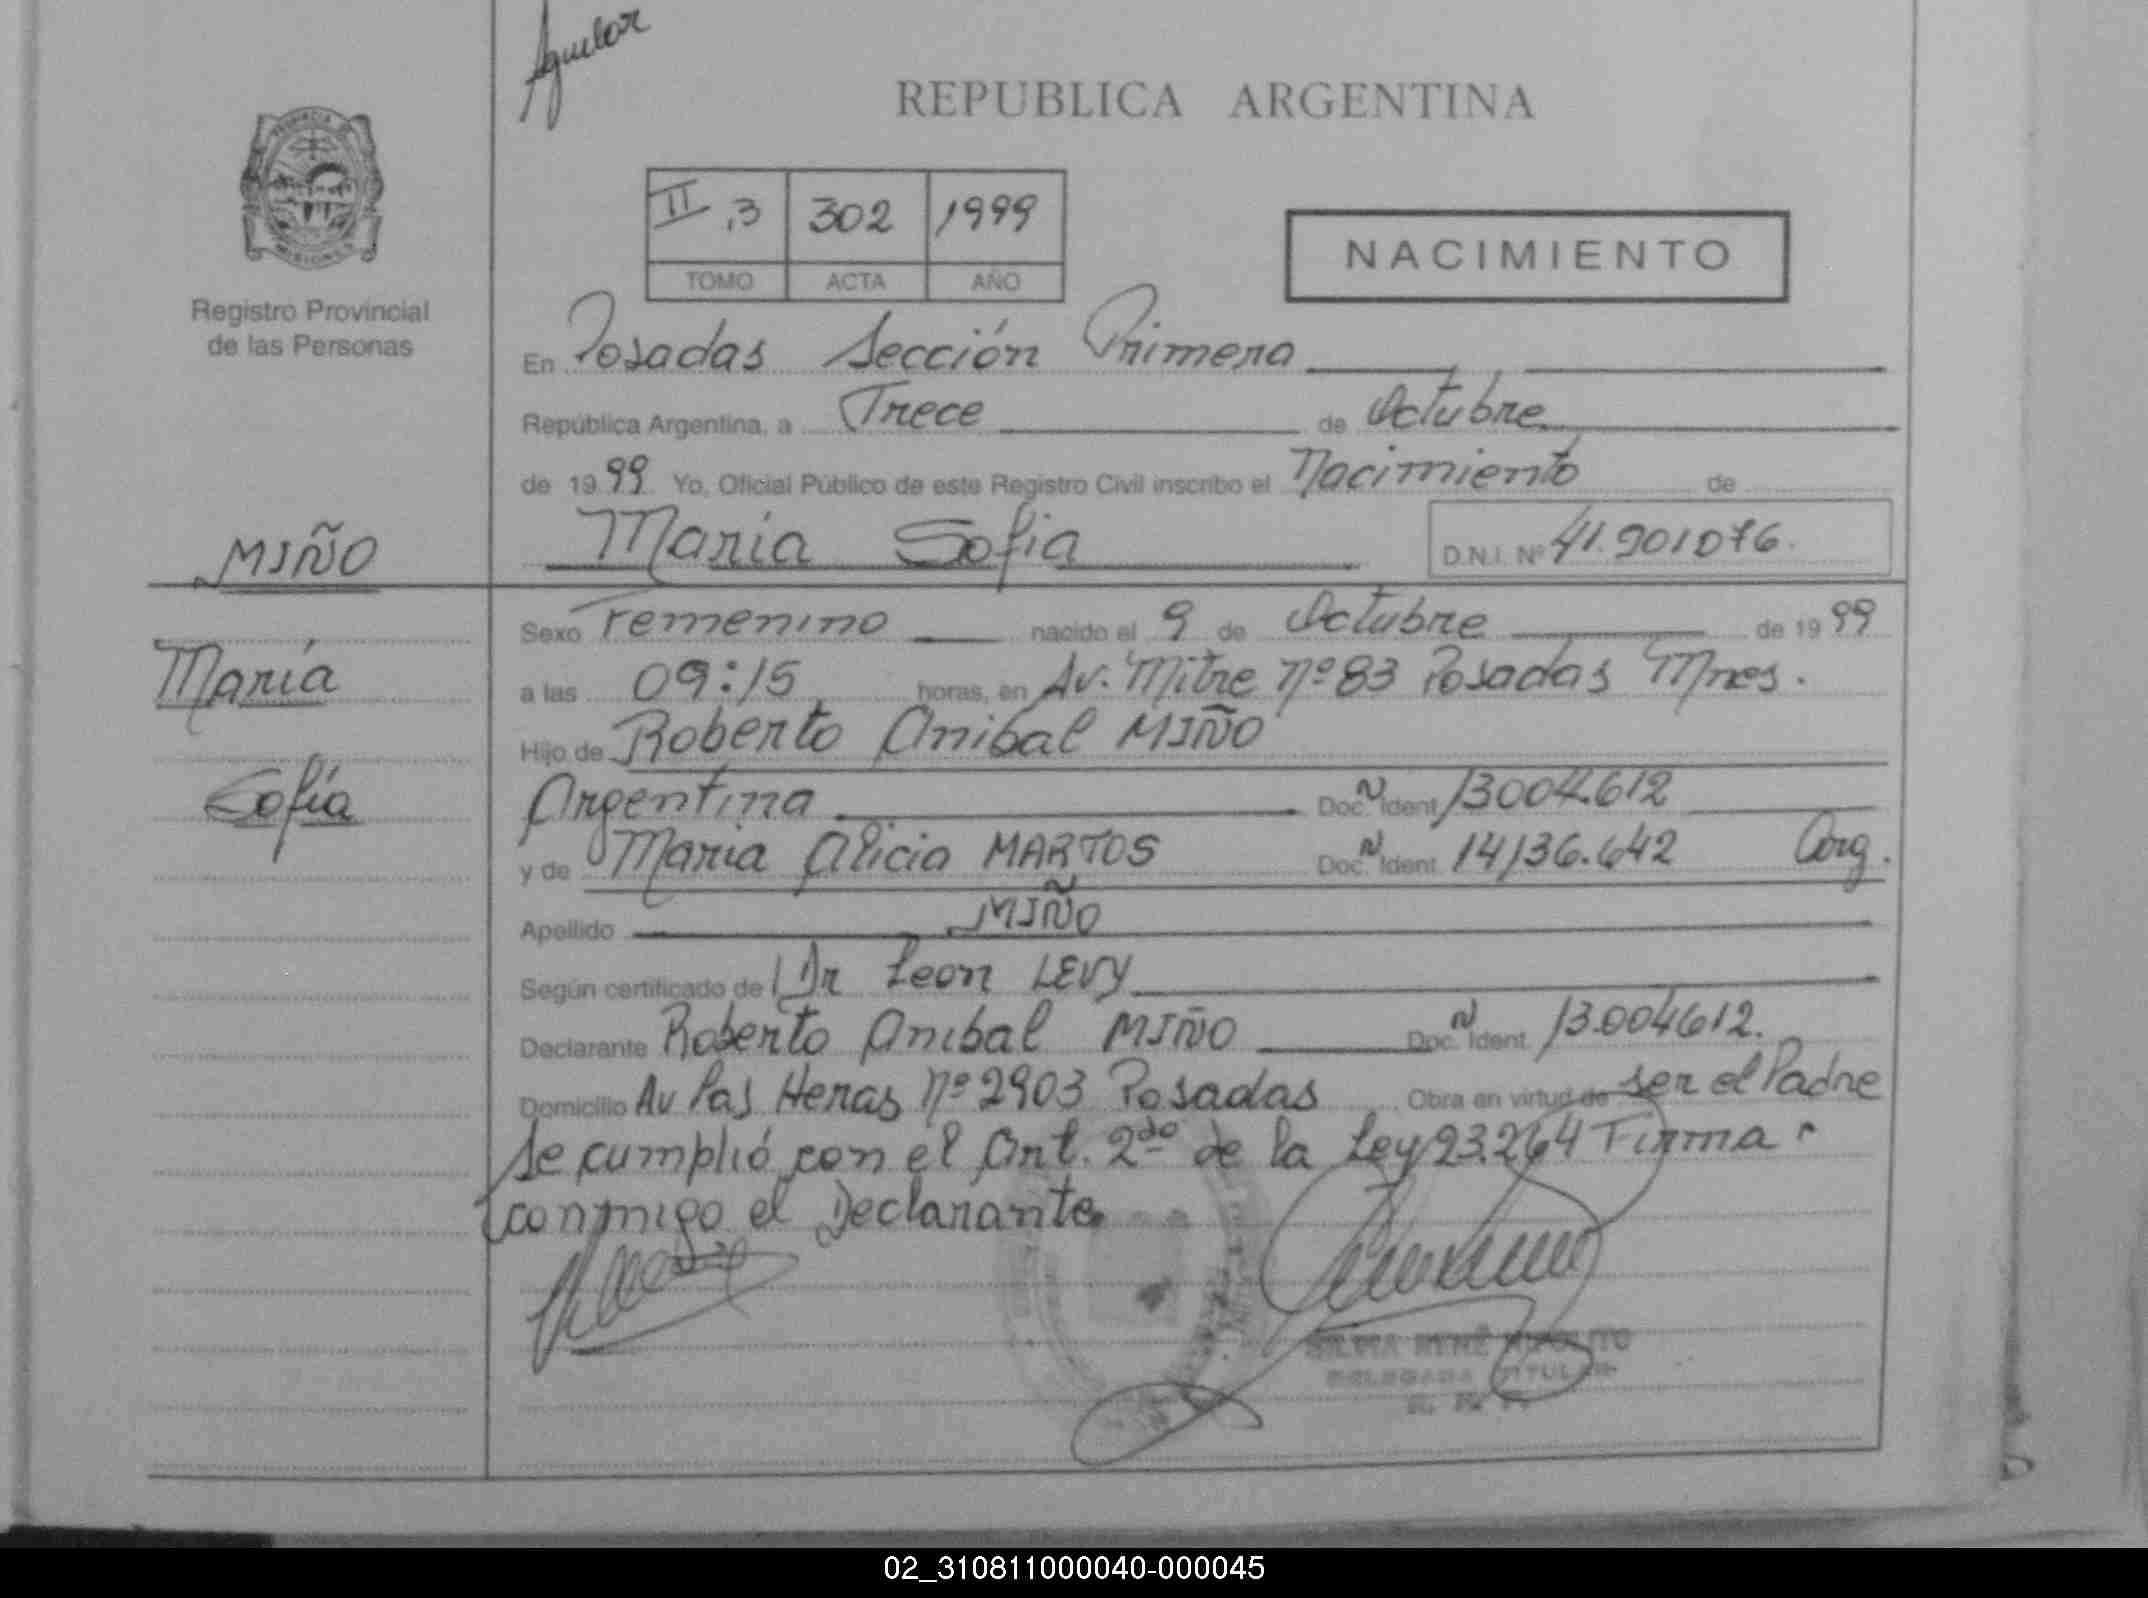 Aguilar
REPUBLICA ARGENTINA
II .3 302 1999
TOMO ACTA AÑO
NACIMIENTO
PROVINCIA DE
MISIONES
Registro Provincial
de las Personas
En Posadas Sección Primera
República Argentina, a Trece de Octubre
de 1999 Yo, Oficial Público de este Registro Civil inscribo el Nacimiento de
María Sofia
D.N.I. Nº 41.901076.
MIÑO
María
Sofía
Sexo Femenino nacido el 9 de Octubre de 1999
a las 09:15 horas, en Av. Mitre Nº 83 Posadas Mnes.
Hijo de Roberto Anibal MIÑO
Argentina Doc. Ident 13004.612
y de Maria Alicia MARTOS Doc. Ident. 14136.642 Arg.
Apellido MIÑO
Según certificado de Dr Leon LEVY
Declarante Roberto Anibal MIÑO Doc. Ident. 13.004612.
Domicilio Av Las Heras Nº 2903 Posadas Obra en virtud de ser el Padre
Se cumplió con el Art. 2do de la Ley 23.264 Firma
conmigo el Declarante
DELEGADA TITULAR
02_310811000040-000045